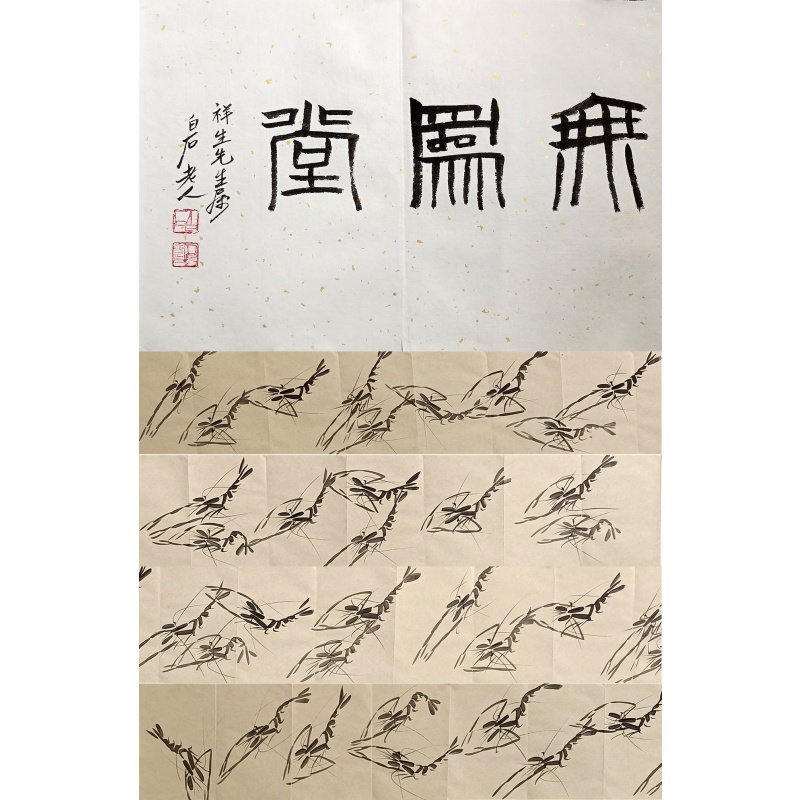 無爲堂
祥生先生属
白石老人